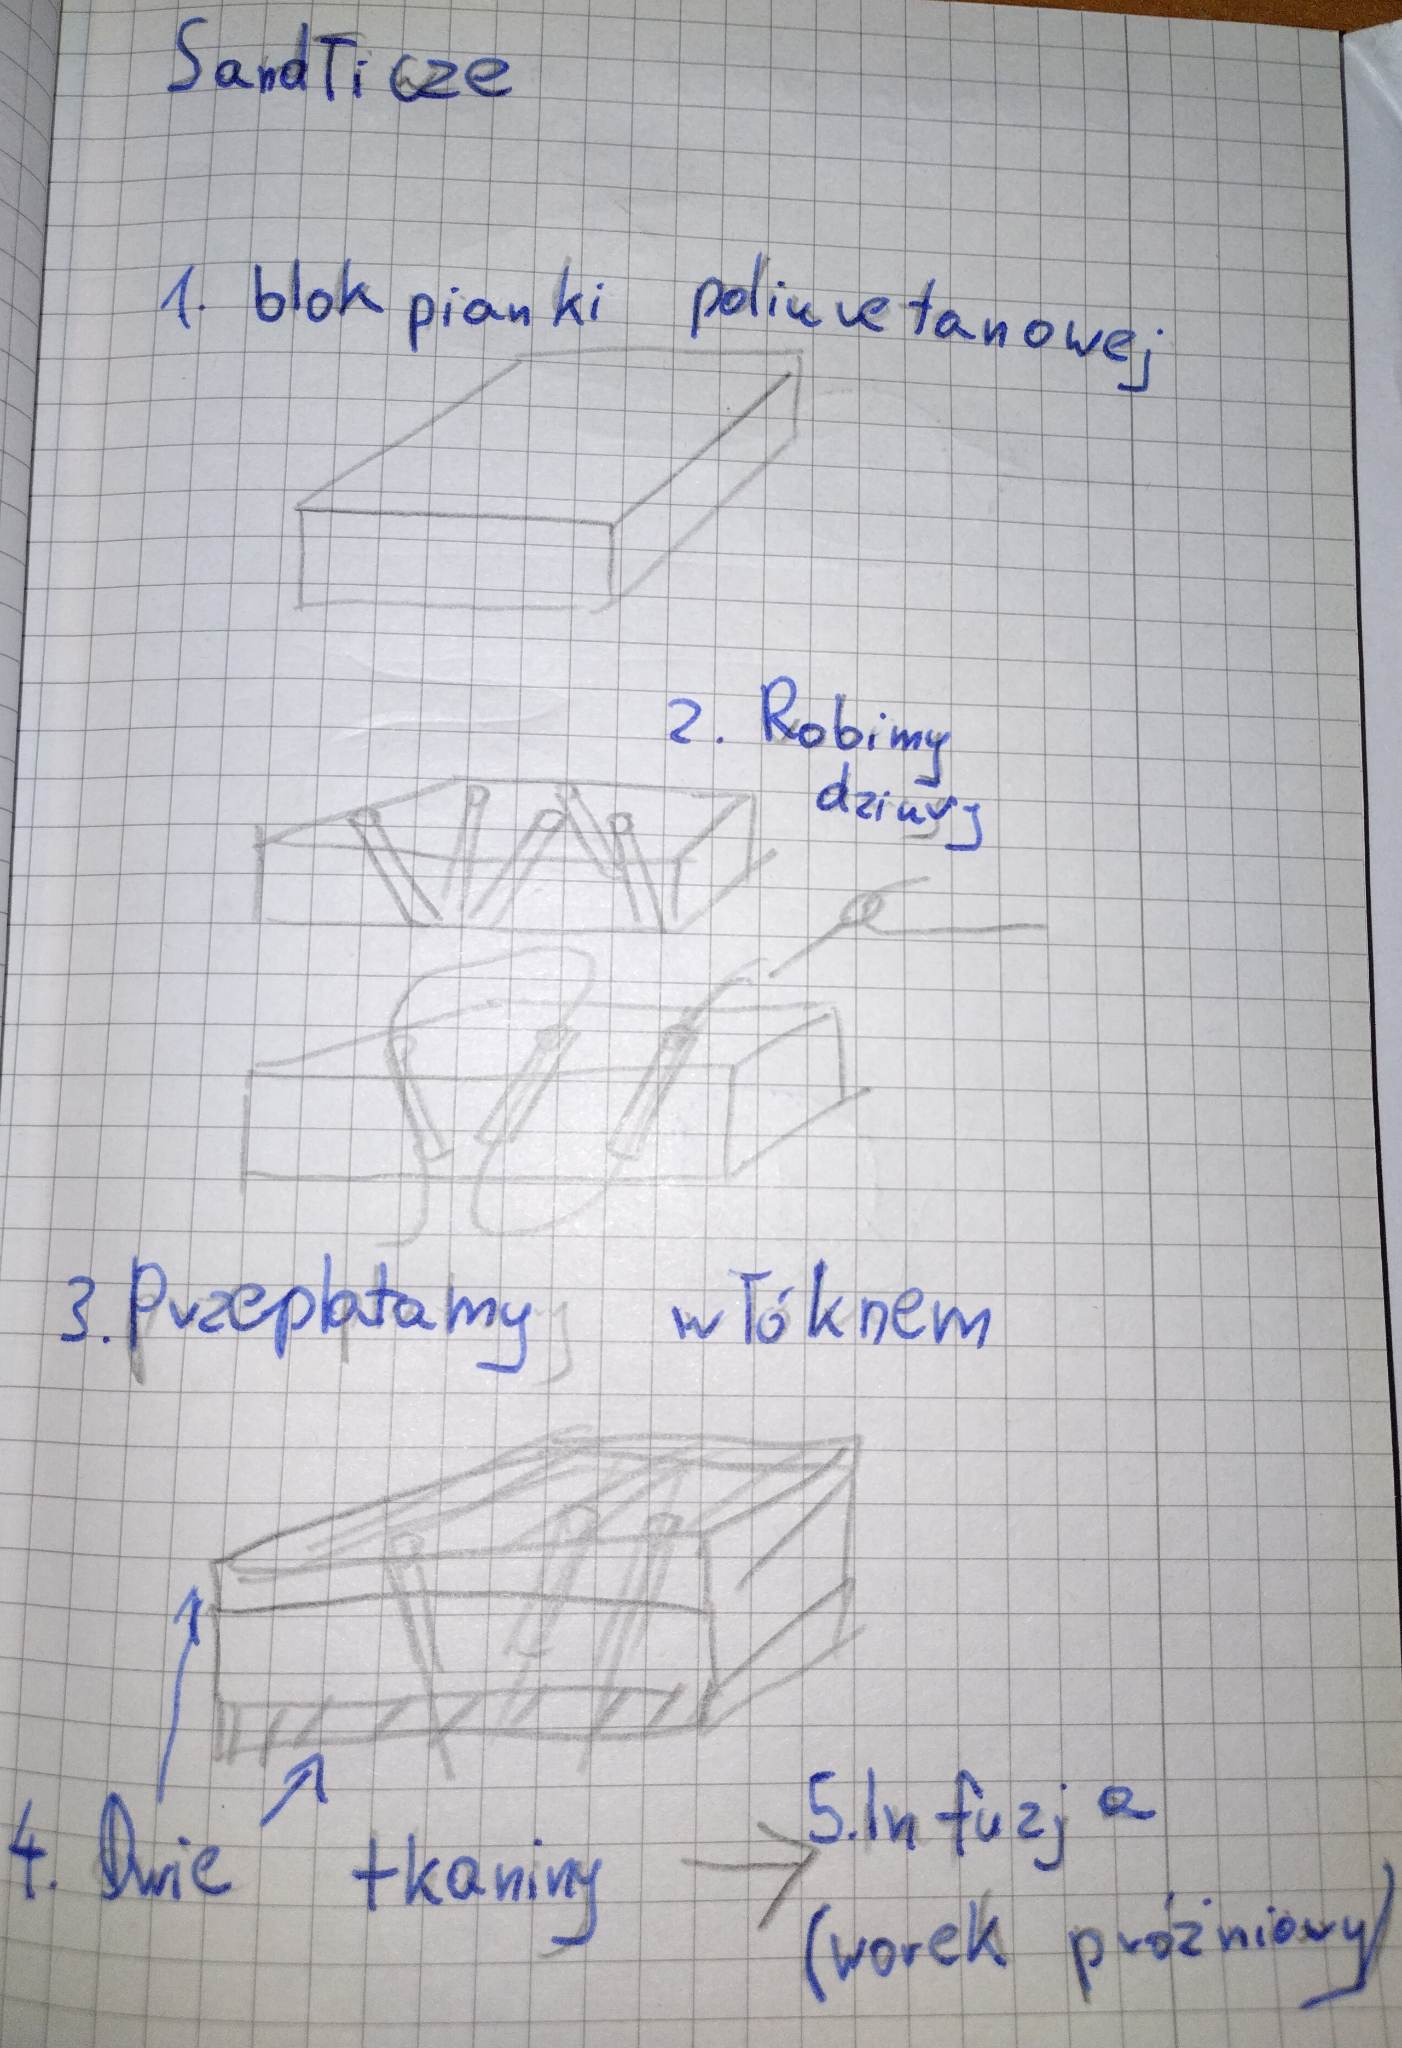 SandTicze
1. blok pianki poliuretanowej
2. Robimy
dziury
3. Przeplatamy włóknem
4. Dwie tkaniny
5. Infuzja
(worek próżniowy)